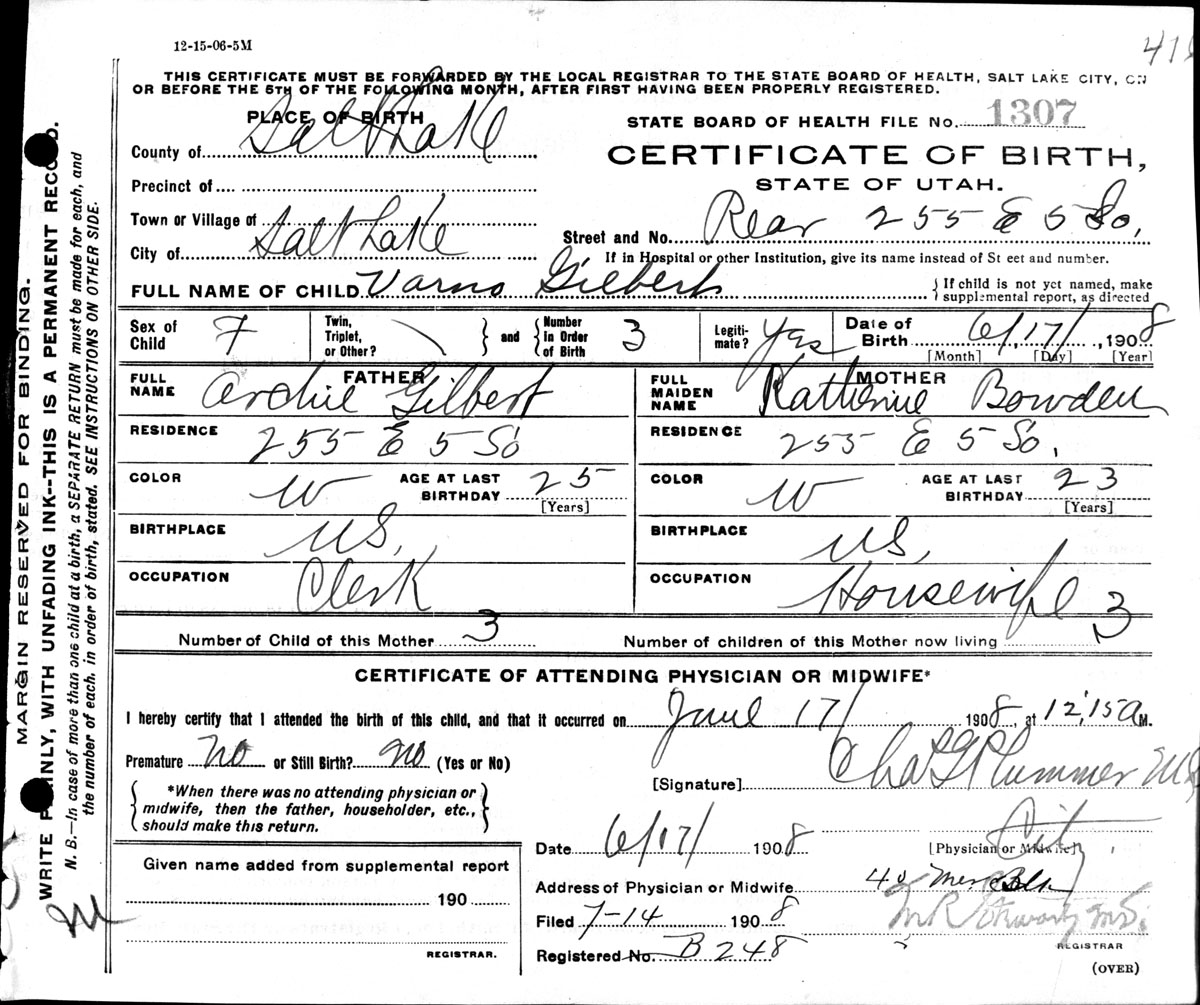 12-15-06-5M
THIS CERTIFICATE MUST BE FORWARDED BY THE LOCAL REGISTRAR TO THE STATE BOARD OF HEALTH, SALT LAKE CITY, ON
OR BEFORE THE 5TH OF THE FOLLOWING MONTH, AFTER FIRST HAVING BEEN PROPERLY REGISTERED.
PLACE OF BIRTH
STATE BOARD OF HEALTH FILE No. 1307
County of Salt Lake
CERTIFICATE OF BIRTH,
Precinct of
STATE OF UTAH.
Town or Village of
Street and No. Rear 255 E 5 So.
City of Salt Lake
If in Hospital or other Institution, give its name instead of St eet and number.
FULL NAME OF CHILD Varno Gilbert
If child is not yet named, make
supplemental report, as directed
Sex of Child F Twin, Triplet, or Other? \ and Number in Order of Birth 3 Legiti-mate? Yes Date of Birth 6/17/ 1908
[Month] [Day] [Year]
FATHER
FULL NAME Archie Gilbert
RESIDENCE 255 E 5 So
COLOR W AGE AT LAST BIRTHDAY 25
[Years]
BIRTHPLACE US,
OCCUPATION Clerk
MOTHER
FULL MAIDEN NAME Katherine Bowden
RESIDENCE 255 E 5 So.
COLOR W AGE AT LAST BIRTHDAY 23
[Years]
BIRTHPLACE US,
OCCUPATION Housewife
Number of Child of this Mother 3 Number of children of this Mother now living 3
CERTIFICATE OF ATTENDING PHYSICIAN OR MIDWIFE*
I hereby certify that I attended the birth of this child, and that it occurred on June 17/ 1908, at 12,15 A M.
Premature no or Still Birth? no (Yes or No)
[Signature] Chas G Plummer MD
*When there was no attending physician or
midwife, then the father, householder, etc.,
should make this return.
City
Date 6/17/ 1908 [Physician or Midwife]
Given name added from supplemental report
190
REGISTRAR.
Address of Physician or Midwife 40 Mer Blk
Filed 7-14 1908 M.D.
Registered No. B 248
REGISTRAR
(OVER)
MARGIN RESERVED FOR BINDING.
WRITE PLAINLY, WITH UNFADING INK--THIS IS A PERMANENT RECORD.
N. B.—In case of more than one child at a birth, a SEPARATE RETURN must be made for each, and
the number of each. in order of birth, stated. SEE INSTRUCTIONS ON OTHER SIDE.